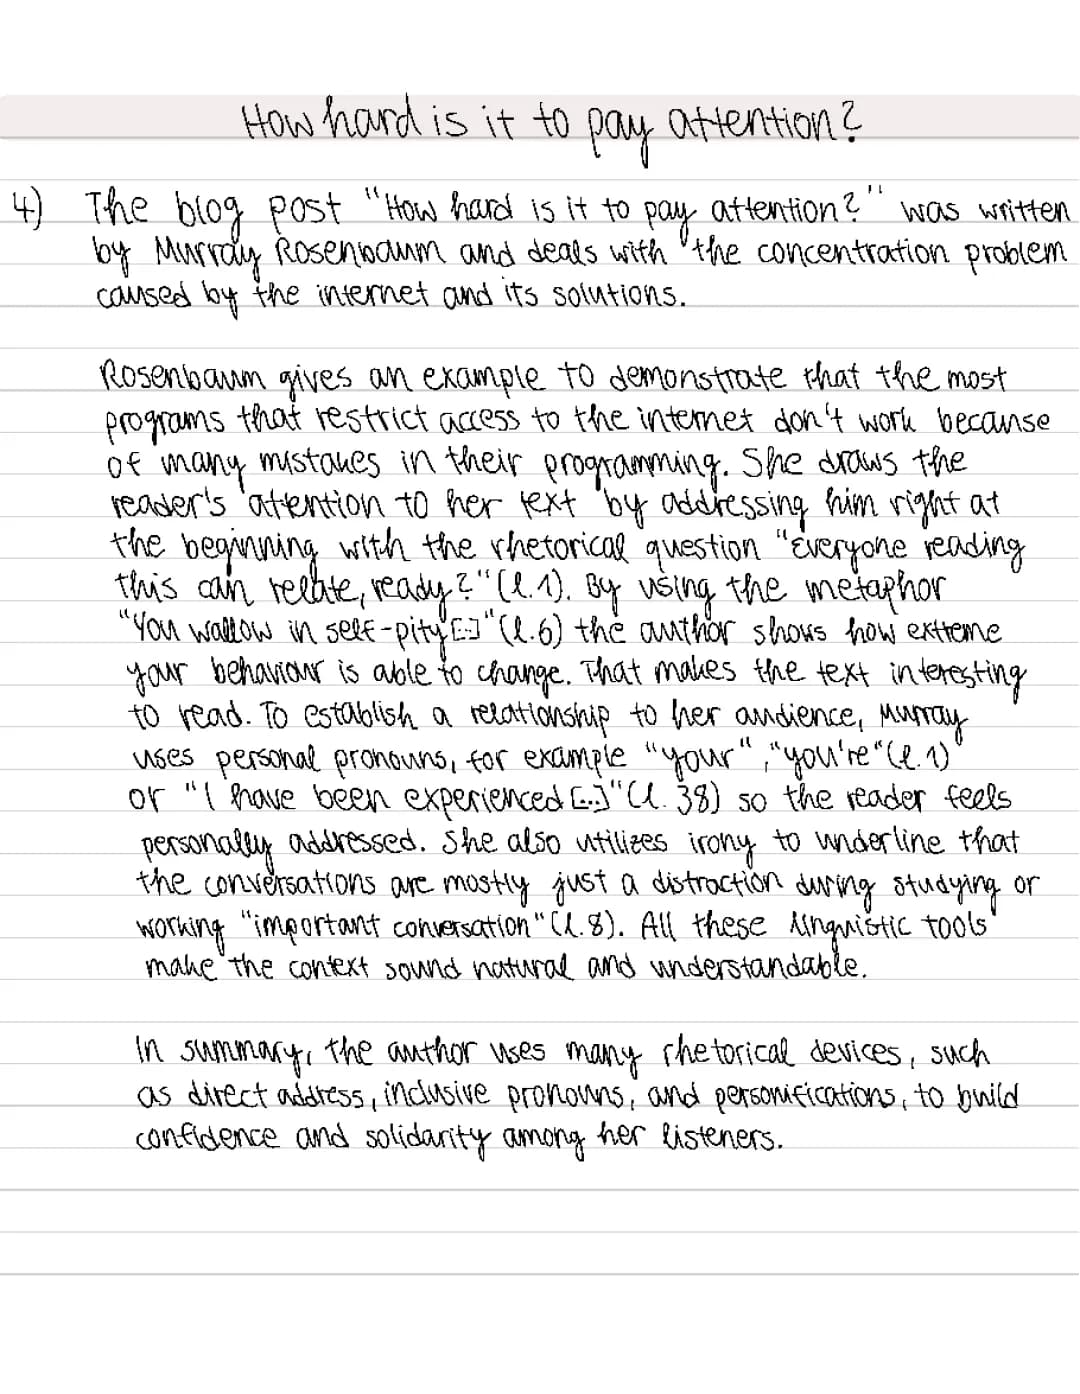 How hard is it to pay attention?
4) The blog post "How hard is it to pay attention?" was written
by Murray Rosenbaum and deals with the concentration problem
caused by the internet and its solutions.
Rosenbaum gives an example to demonstrate that the most
programs that restrict access to the internet don't work because
of many mistakes in their programming. She draws the
reader's attention to her text by addressing him right at
the beginning with the rhetorical question "Everyone reading
this can relate, ready?" (l.1). By using the metaphor
"You wallow in self-pity [..]" (l.6) the author shows how extreme
your behaviour is able to change. That makes the text interesting
to read. To establish a relationship to her audience, Murray
uses personal pronouns, for example "your", "you're" (l.1)
or "I have been experienced [..]" (l. 38) so the reader feels
personally addressed. She also utilizes irony to underline that
the conversations are mostly just a distraction during studying or
working "important conversation" (l.8). All these linguistic tools
make the context sound natural and understandable.
In summary, the author uses many rhetorical devices, such
as direct address, inclusive pronouns, and personifications, to build
confidence and solidarity among her listeners.